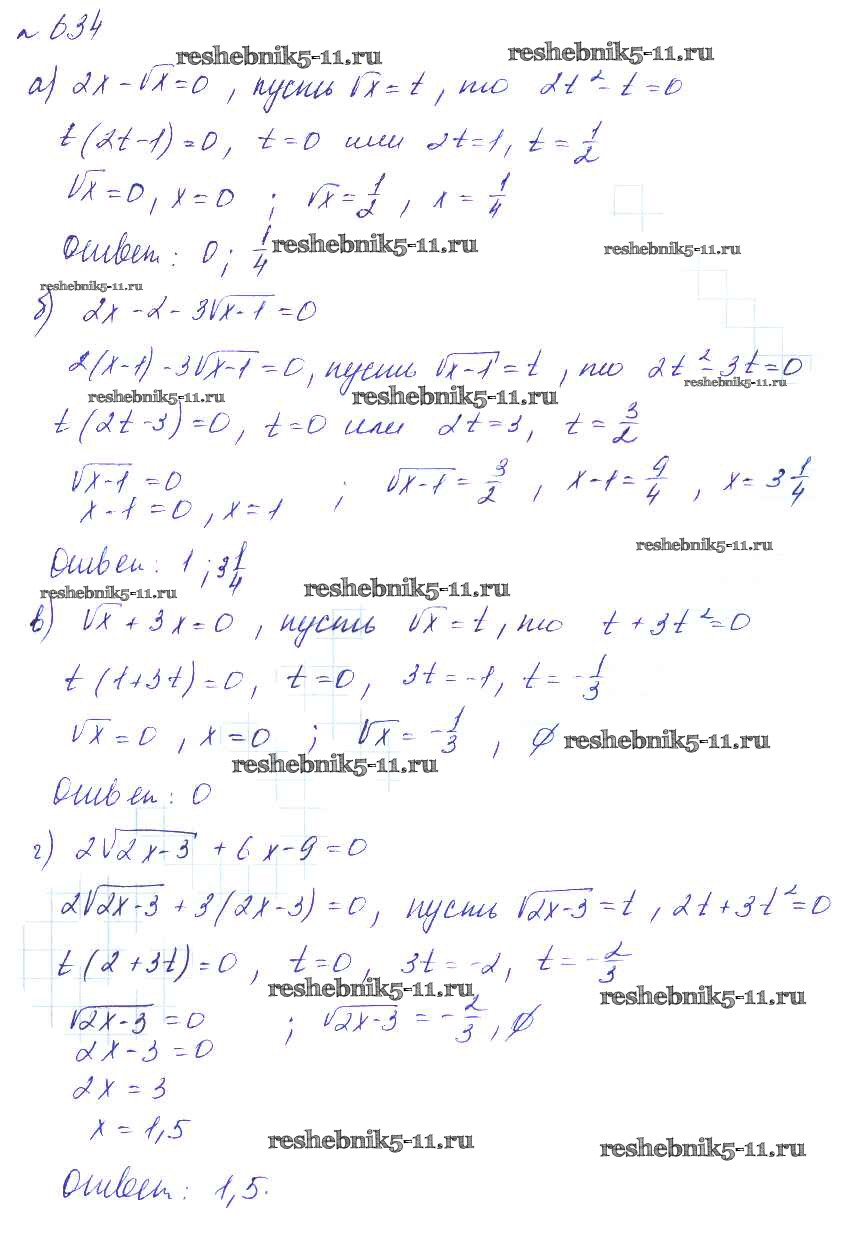 № 634
reshebnik5-11.ru reshebnik5-11.ru
а) 2x - √x = 0 , пусть √x = t , то 2t² - t = 0
t(2t-1) = 0, t = 0 или 2t = 1, t = 1/2
√x = 0, x = 0 ; √x = 1/2 , x = 1/4
Ответ: 0; 1/4 reshebnik5-11.ru reshebnik5-11.ru
reshebnik5-11.ru
б) 2x - 2 - 3√(x-1) = 0
2(x-1) - 3√(x-1) = 0, пусть √(x-1) = t , то 2t² - 3t = 0
reshebnik5-11.ru reshebnik5-11.ru reshebnik5-11.ru
t(2t-3) = 0, t = 0 или 2t = 3, t = 3/2
√(x-1) = 0 ; √(x-1) = 3/2 , x-1 = 9/4 , x = 3 1/4
x-1 = 0, x = 1
reshebnik5-11.ru
Ответ: 1 ; 3 1/4
reshebnik5-11.ru reshebnik5-11.ru
в) √x + 3x = 0 , пусть √x = t, то t + 3t² = 0
t(1+3t) = 0, t = 0, 3t = -1, t = -1/3
√x = 0 , x = 0 ; √x = -1/3 , ∅ reshebnik5-11.ru
reshebnik5-11.ru
Ответ: 0
г) 2√(2x-3) + 6x - 9 = 0
2√(2x-3) + 3(2x-3) = 0, пусть √(2x-3) = t , 2t + 3t² = 0
t(2+3t) = 0 , t = 0, 3t = -2, t = -2/3
reshebnik5-11.ru reshebnik5-11.ru
√(2x-3) = 0 ; √(2x-3) = -2/3, ∅
2x - 3 = 0
2x = 3
x = 1,5
reshebnik5-11.ru reshebnik5-11.ru
Ответ: 1,5.